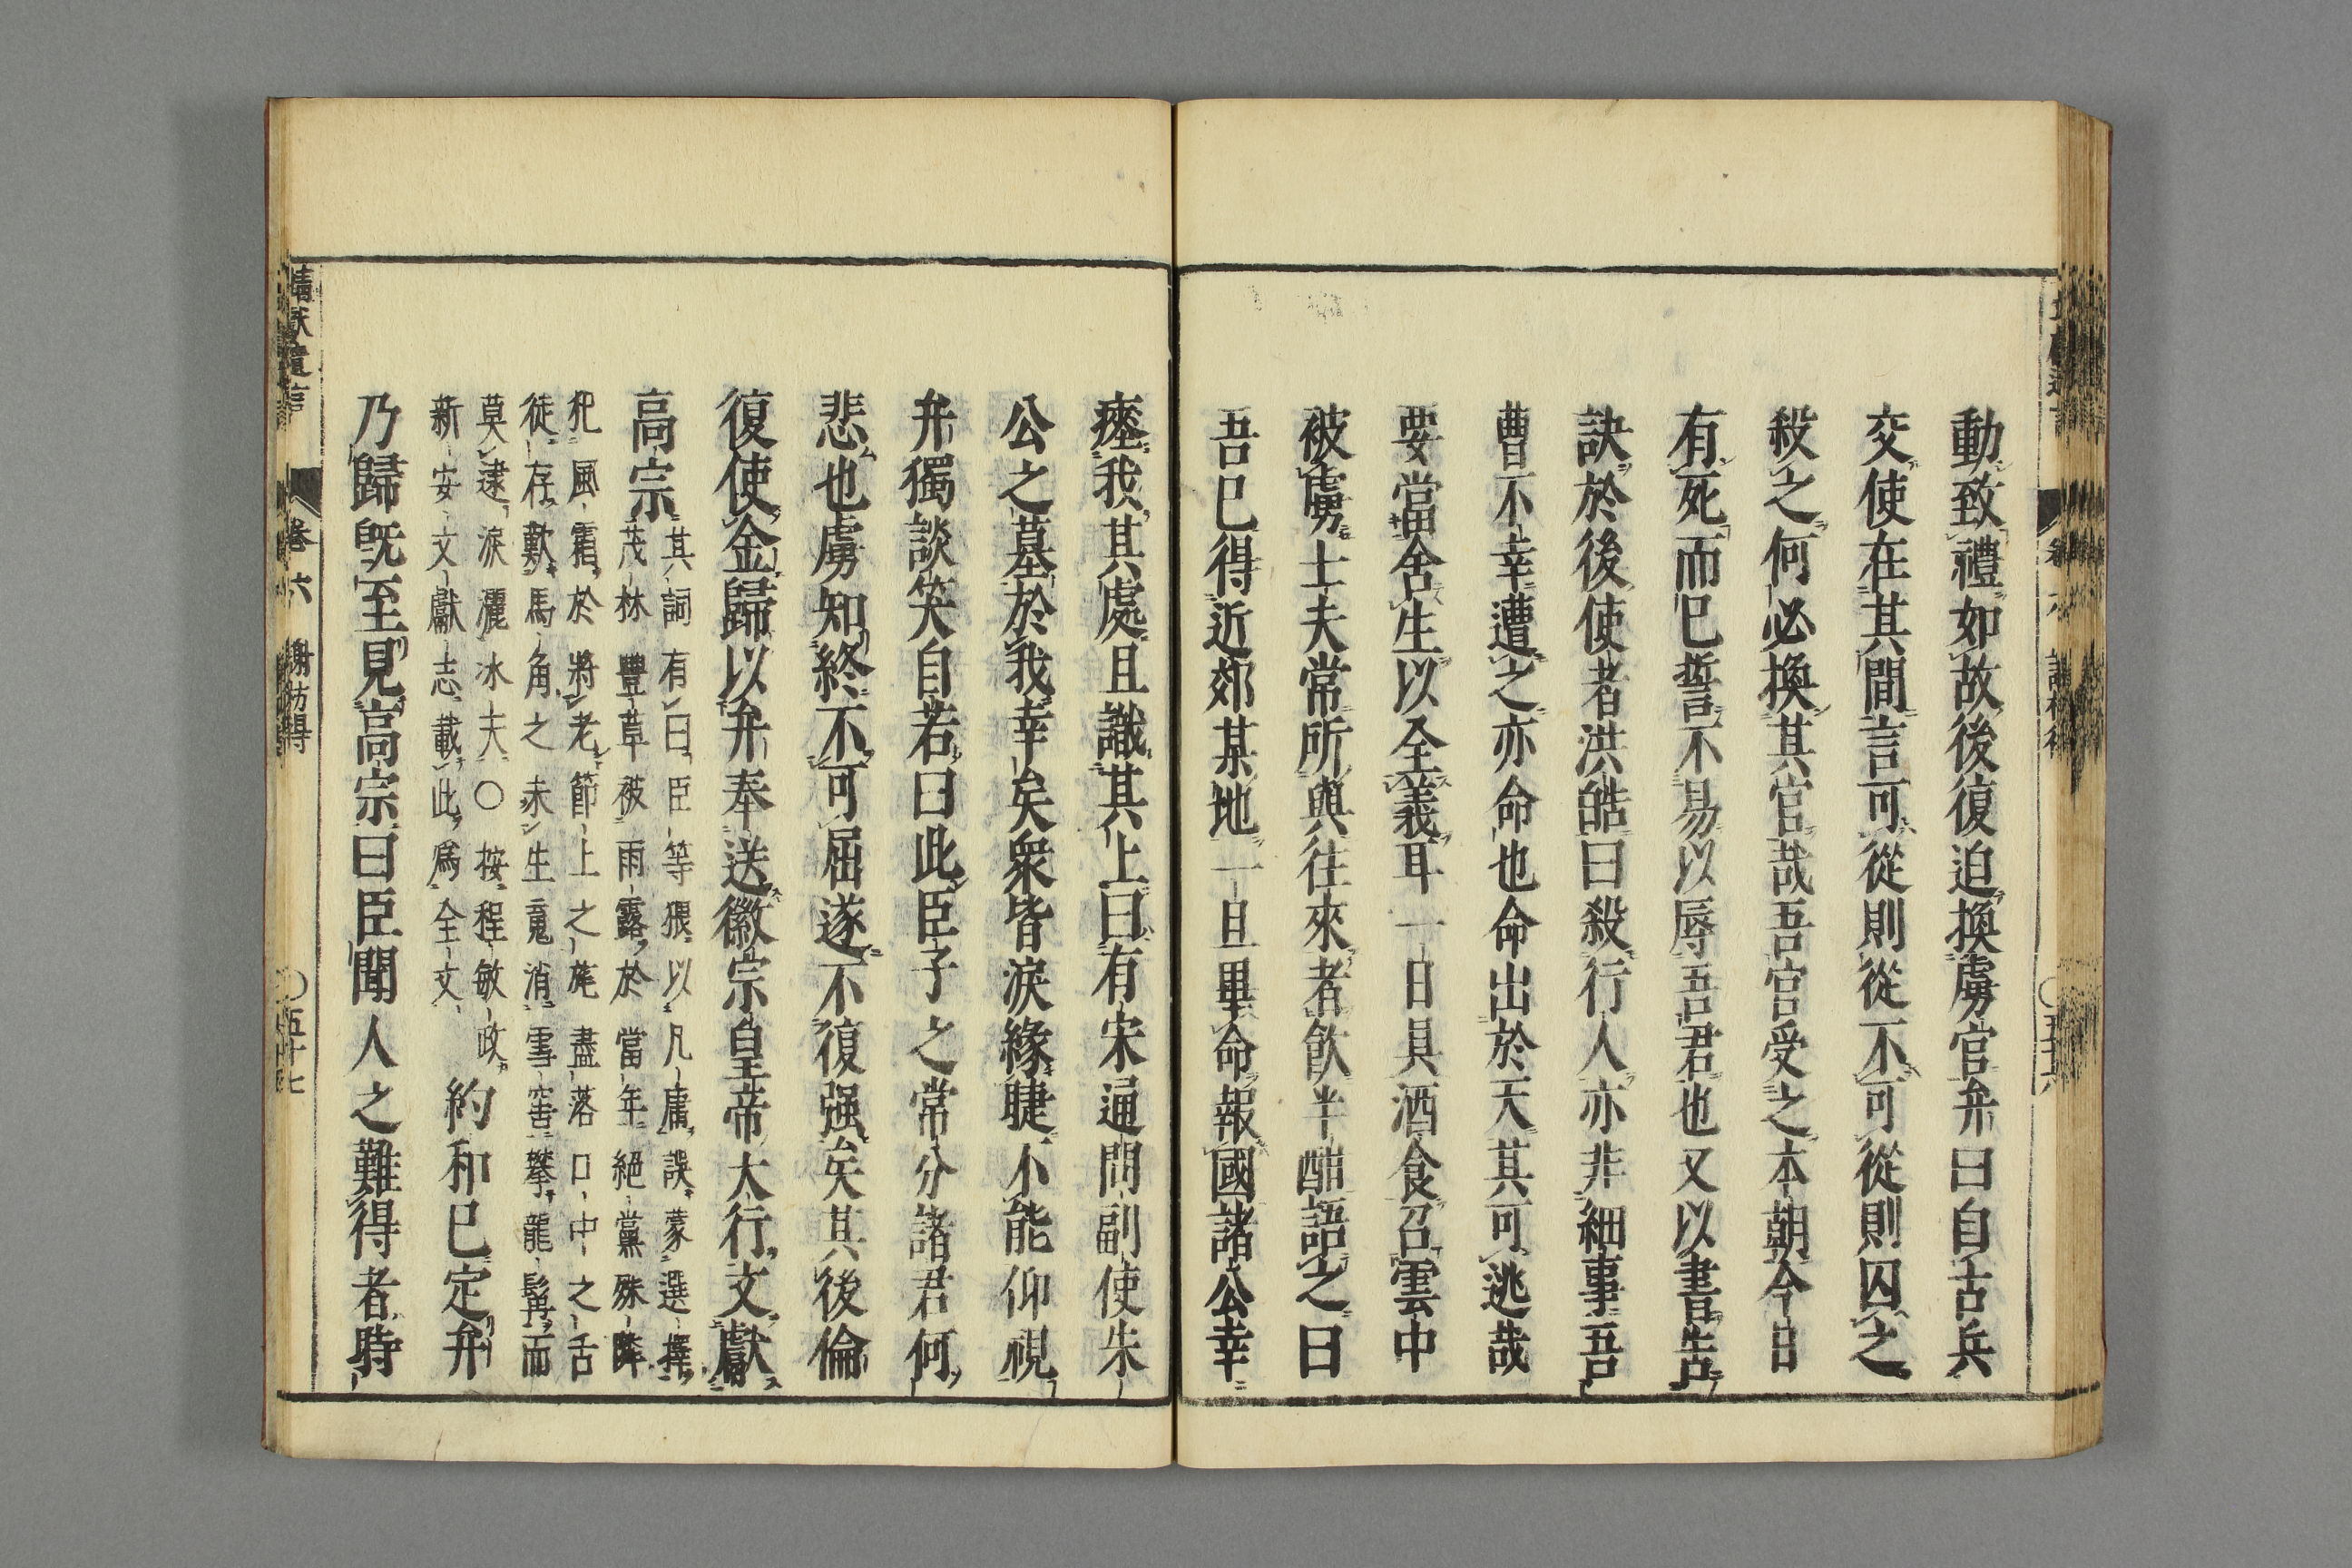 動致禮如故後復迫換虜官弁曰自古兵
交使在其間言可從則從不可從則囚之
殺之何必換其官哉吾官受之本朝今日
有死而已誓不易以辱吾君也又以書告
訣於後使者洪皓曰殺行人亦非細事吾
曹不幸遭之亦命也命出於天其可逃哉
要當舍生以全義耳一日具酒食召雲中
被虜士夫常所與往來者飮半酣語之曰
吾已得近郊某地一旦畢命報國諸公幸
瘞我其處且識其上曰有宋通問副使朱
公之墓於我幸矣衆皆淚緣睫不能仰視
弁獨談笑自若曰此臣子之常分諸君何
悲也虜知終不可屈遂不復强矣其後倫
復使金歸以弁奉送徽宗皇帝大行文獻
高宗
其詞有曰臣等猥以凡庸誤蒙選擇
茂林豐草被雨露於當年絕黨殊隣
犯風霜於將老節上之旄盡落口中之舌
徒存歎馬角之未生魂消雪窖攀龍髯而
莫逮淚灑冰天○按程敏政
新安文獻志載此爲全文
約和已定弁
乃歸旣至見高宗曰臣聞人之難得者時
靖献遺言 卷六 謝枋得 〇五十七